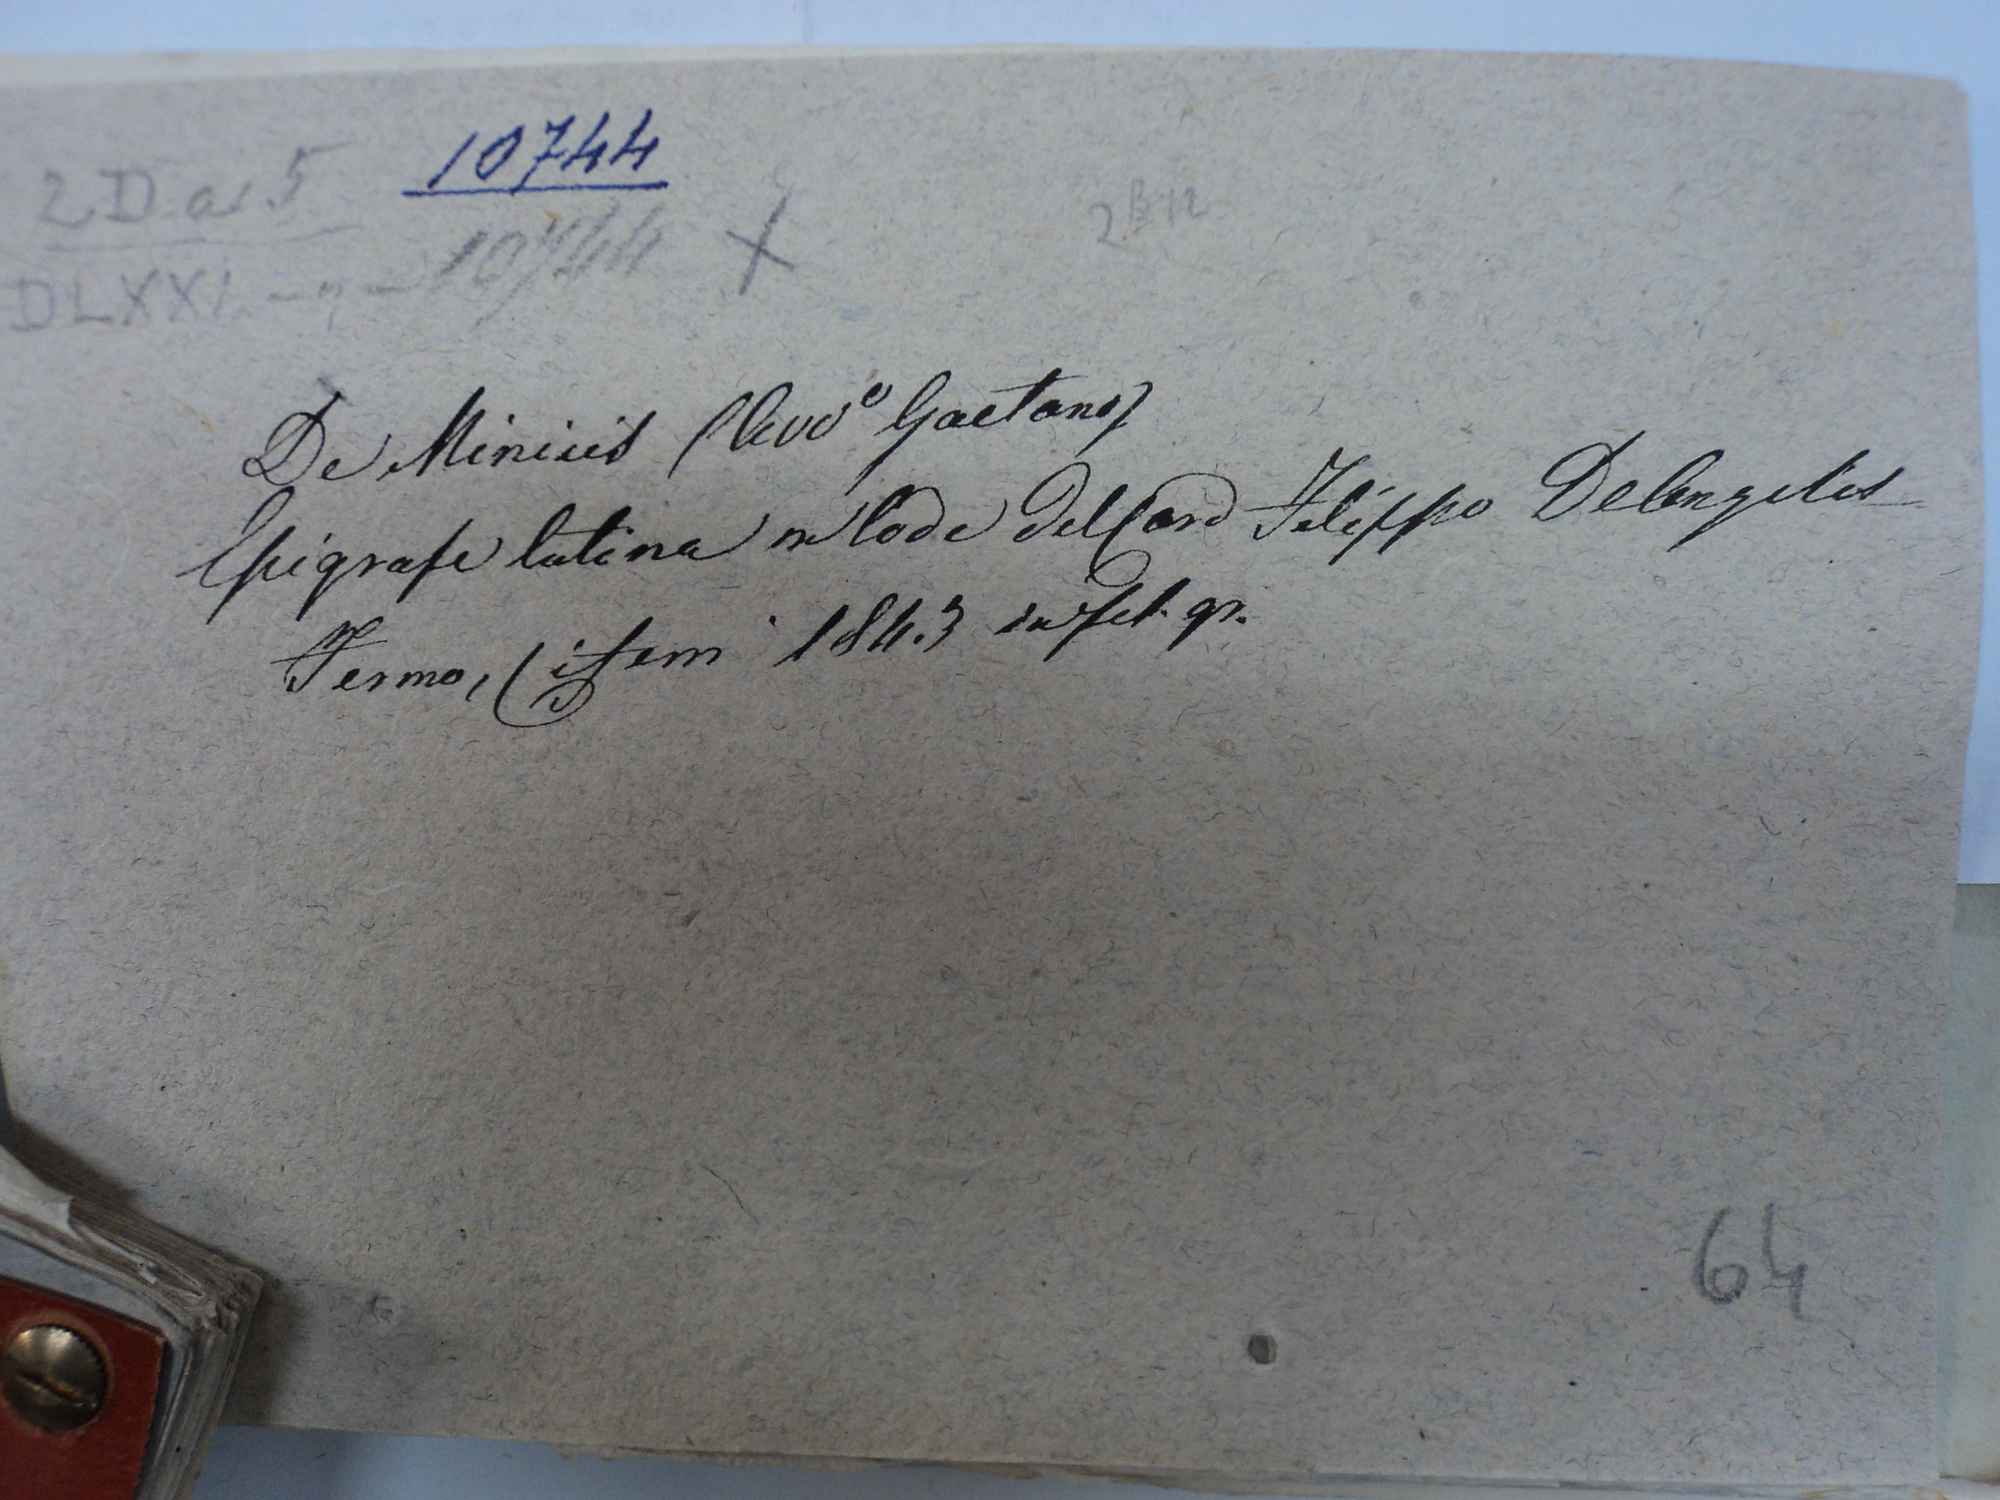 10744
2 D a 5
10744 X
DLXXI. - 9 -
2 B 12
De Minicis (Avvº Gaetano)
Epigrafe latina in lode del Card Filippo DeAngelis
Fermo, Ciferri 1843 in fol. gr.
64